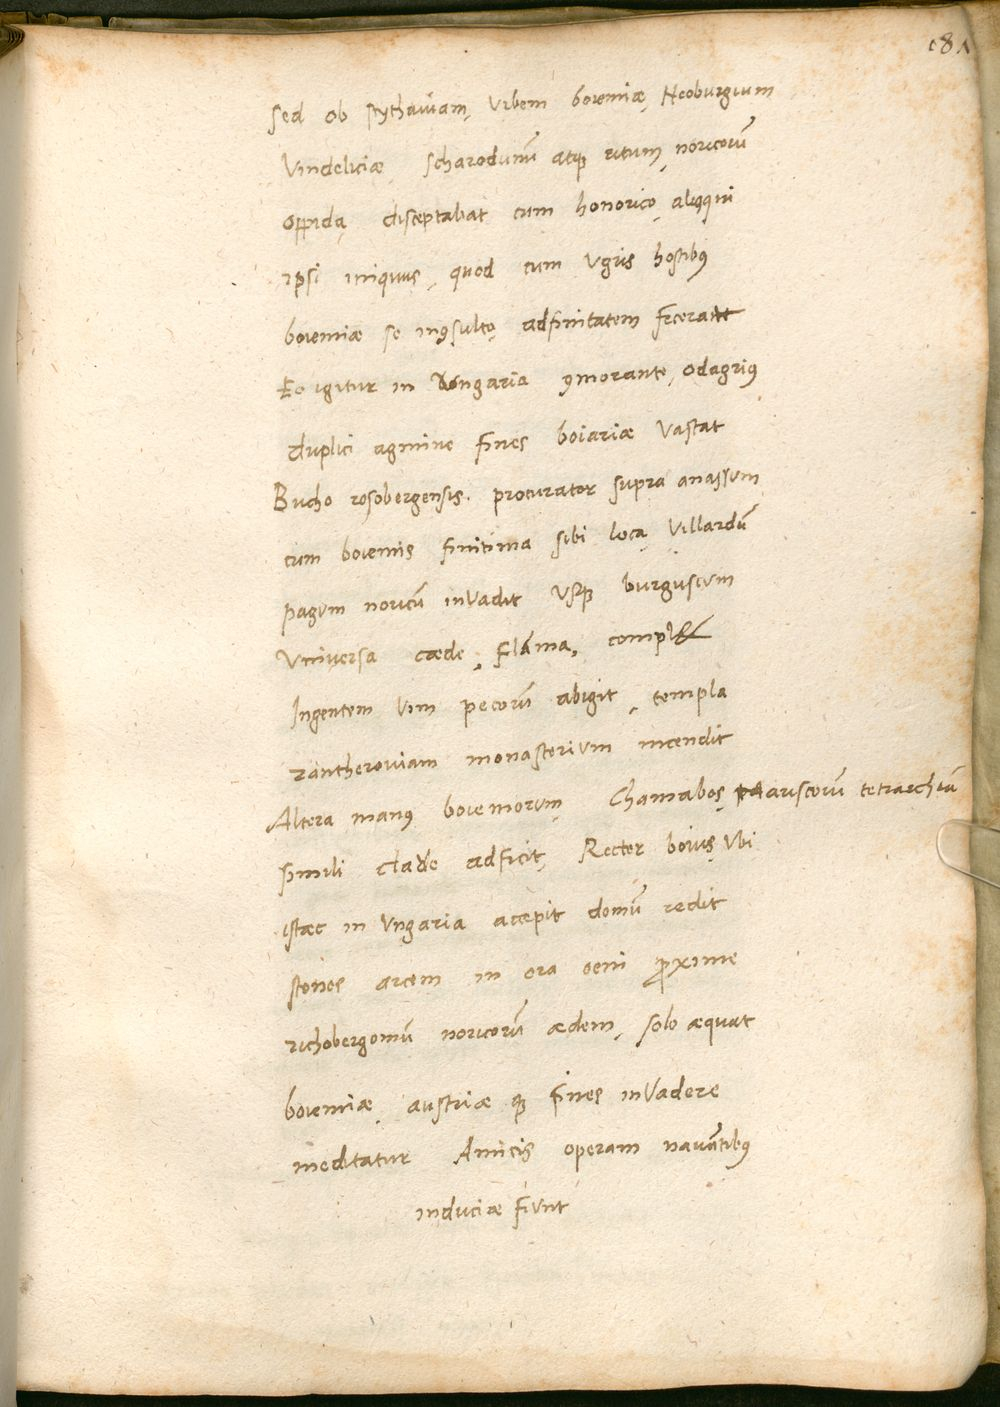 181
sed ob scythaviam, Urbem boiemiæ, Neoburgium
Vindeliciæ scharodunū atqꝫ ritum noricorū
oppida disceptabat cum honorico, alioqui
ipsi iniquus, quod cum Ugris hostibꝰ
boiemiæ se inꝯsulto adfinitatem fecerat
Eo igitur in Ungaria ꝯmorante, odagriꝰ
duplici agmine fines boiariæ vastat
Bucho rosobergensis. procurator supra anassum
cum boiemis finitima sibi loca, Villardū
pagum noricū invadit Usqꝫ burguscum
Universa cæde, flāma, complet
Ingentem vim pecorū abigit, templa
rantheroviam monasterium incendit
Altera manꝰ boiemorum Chamabos, nariscorū tetrarchiā
simili clade adficit, Rector boius, Ubi
istæc in Ungaria accepit domū redit
stenes arcem in ora oeni ꝓxime
richobergomū noricorū ædem, solo æquat
boiemiæ austriæ qꝫ fines invadere
meditatur Amicis operam navātibꝰ
induciæ fiunt